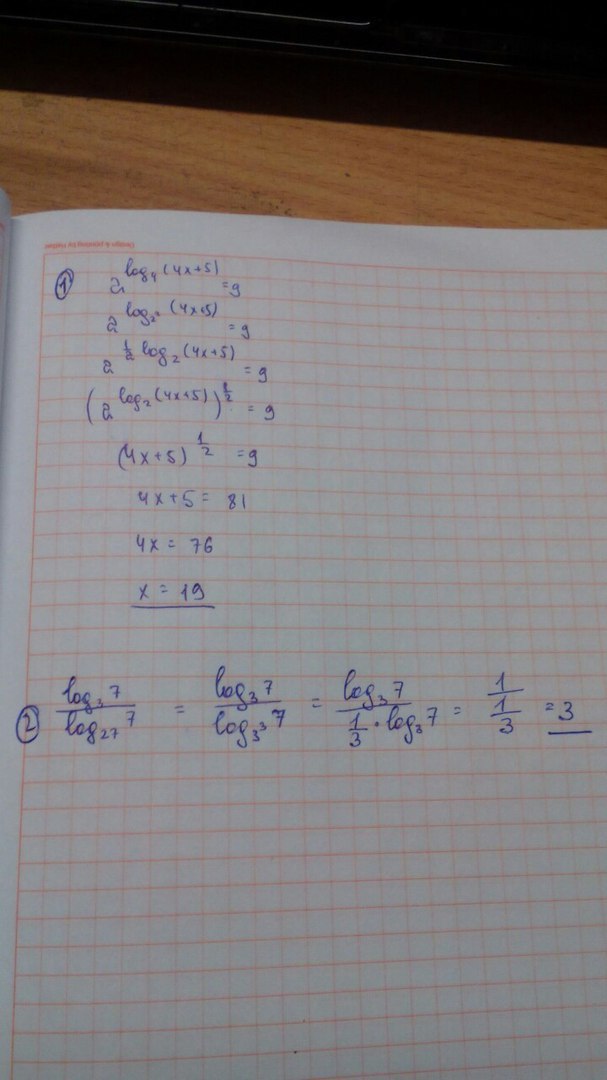 Design & printing by Herlitz
① 2^{log_4(4x+5)} = 9
2^{log_{2^2}(4x+5)} = 9
2^{\frac{1}{2} log_2(4x+5)} = 9
(2^{log_2(4x+5)})^{\frac{1}{2}} = 9
(4x+5)^{\frac{1}{2}} = 9
4x+5 = 81
4x = 76
x = 19
② \frac{log_3 7}{log_{27} 7} = \frac{log_3 7}{log_{3^3} 7} = \frac{log_3 7}{\frac{1}{3} · log_3 7} = \frac{1}{\frac{1}{3}} = 3